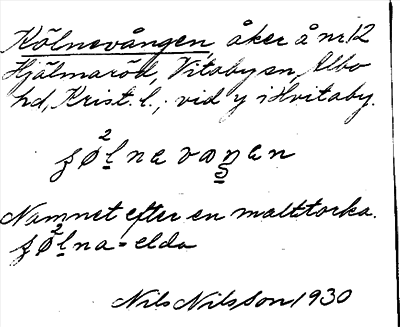 Kölnevången, åker å nr 12
Hjälmaröd, Vitaby sn, Albo
hd, Krist. l.; vid y i Hvitaby.
ʃø²lnavaŋan
Namnet efter en malttorka.
ʃø²lna-elda
Nils Nilsson 1930